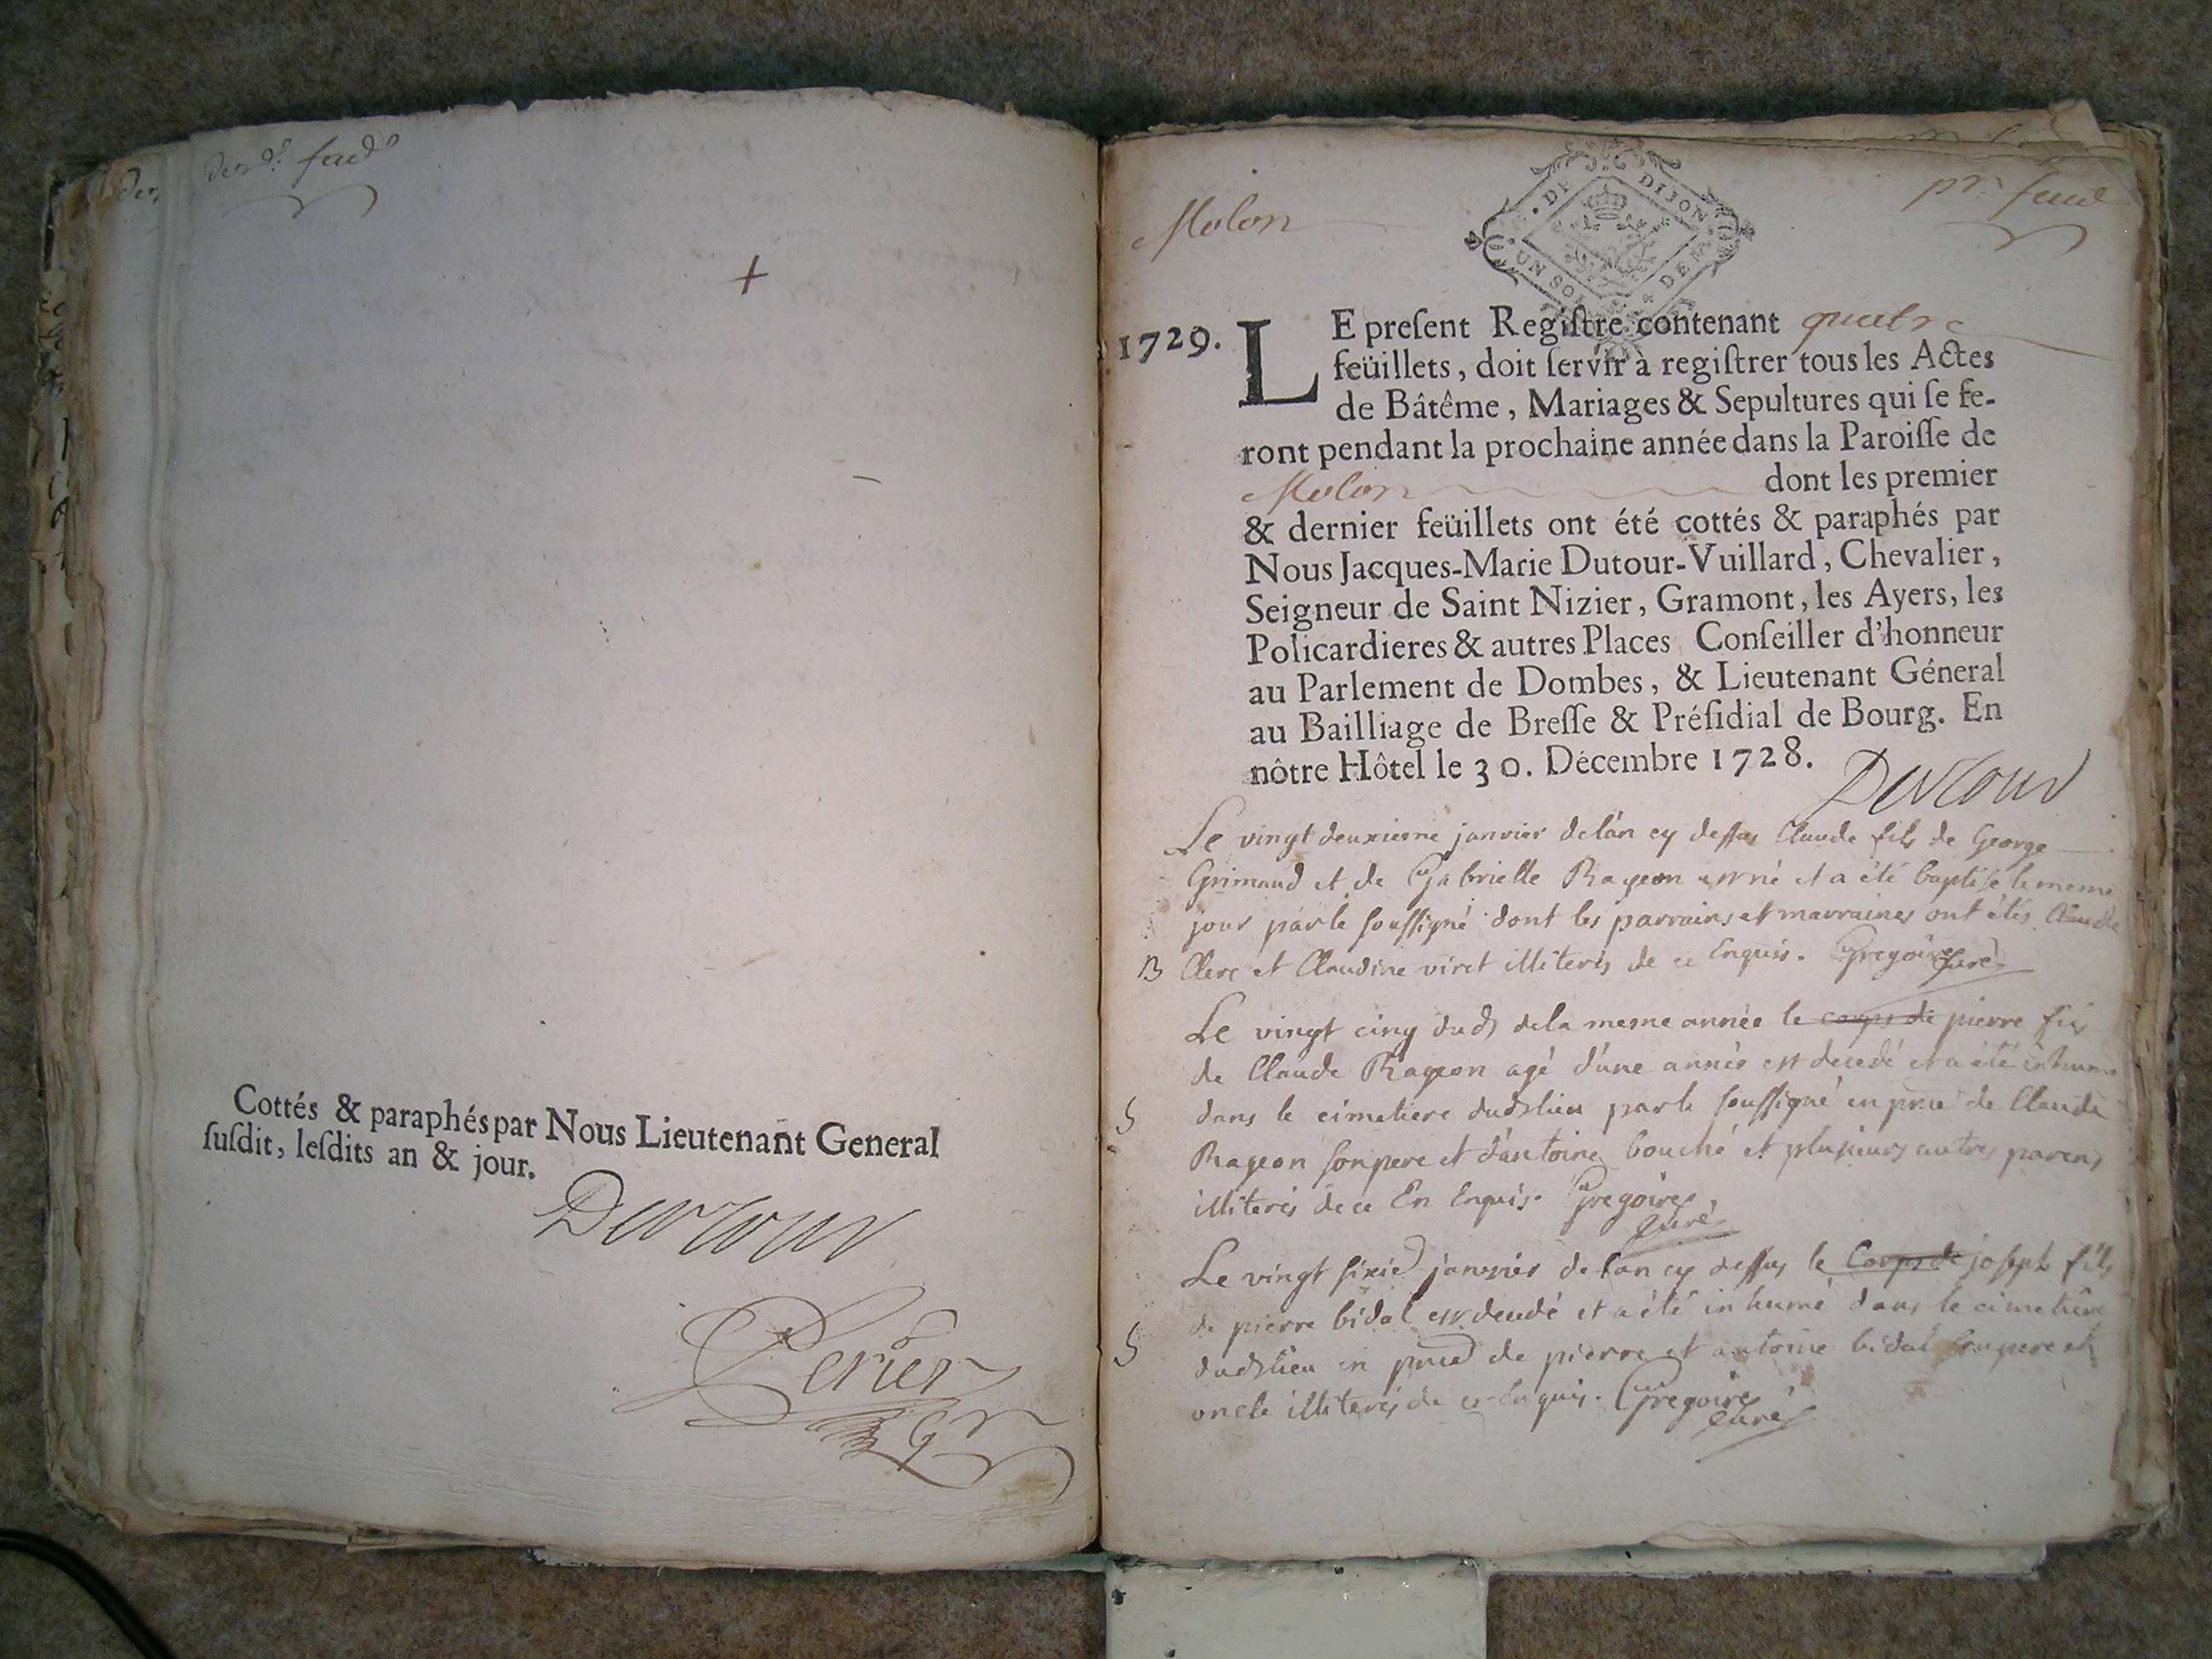 der. feuil
+
Cottés & paraphés par Nous Lieutenant General
ſuſdit, leſdits an & jour.
Dutour
Perier
Molon
DE DIJON
UN SOL
pr. feuil
1729.
LE preſent Regiſtre contenant quatre
feüillets, doit ſervir à regiſtrer tous les Actes
de Bâtême, Mariages & Sepultures qui ſe fe-
ront pendant la prochaine année dans la Paroiſſe de
Molon dont les premier
& dernier feüillets ont été cottés & paraphés par
Nous Jacques-Marie Dutour-Vuillard, Chevalier,
Seigneur de Saint Nizier, Gramont, les Ayers, les
Policardieres & autres Places Conſeiller d'honneur
au Parlement de Dombes, & Lieutenant Géneral
au Bailliage de Breſſe & Préſidial de Bourg. En
nôtre Hôtel le 30. Décembre 1728.
Dutour
Le vingt deuxieme janvier de lan cy dessus Claude fils de George
Grimaud et de Gabrielle Rageon est né et a été baptisé le meme
jour par le soussigné dont les parrains et marraines ont étés Claude
B Clerc et Claudine viret illiterés de ce Enquis. Gregoire Curé
Le vingt cinq dud dela mesme année le corps de pierre fils
de Claude Rageon agé d'une année est decedé et a été inhumé
S dans le cimetiere dudt lieu par le soussigné en pnce de Claude
Rageon son pere et d'antoine bouché et plusieurs autres parens
illiterés de ce En Enquis. Gregoire,
curé
Le vingt sixie janvier de lan cy dessus le Corps de joseph fils
de pierre bidal est decedé et a été inhumé dans le cimetiere
S dudt lieu en pnce de pierre et antoine bidal son pere et
oncle illiterés de ce Enquis. Gregoire
curé